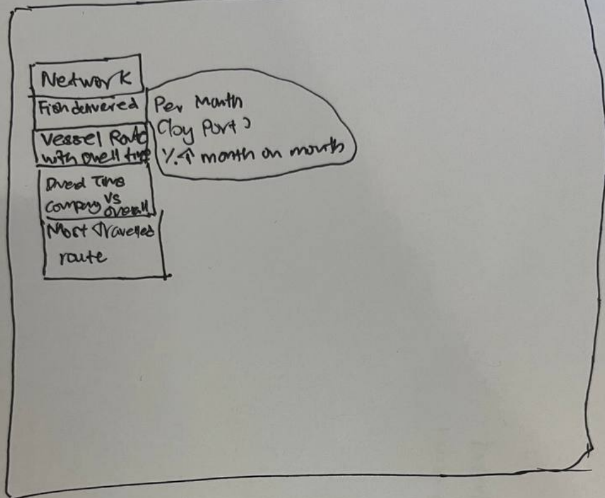 Network
Fish delivered
Vessel Route
with dwell time
Dwell Time
company vs overall
Most travelled
route
Per Month
(by Port)
%↑ month on month